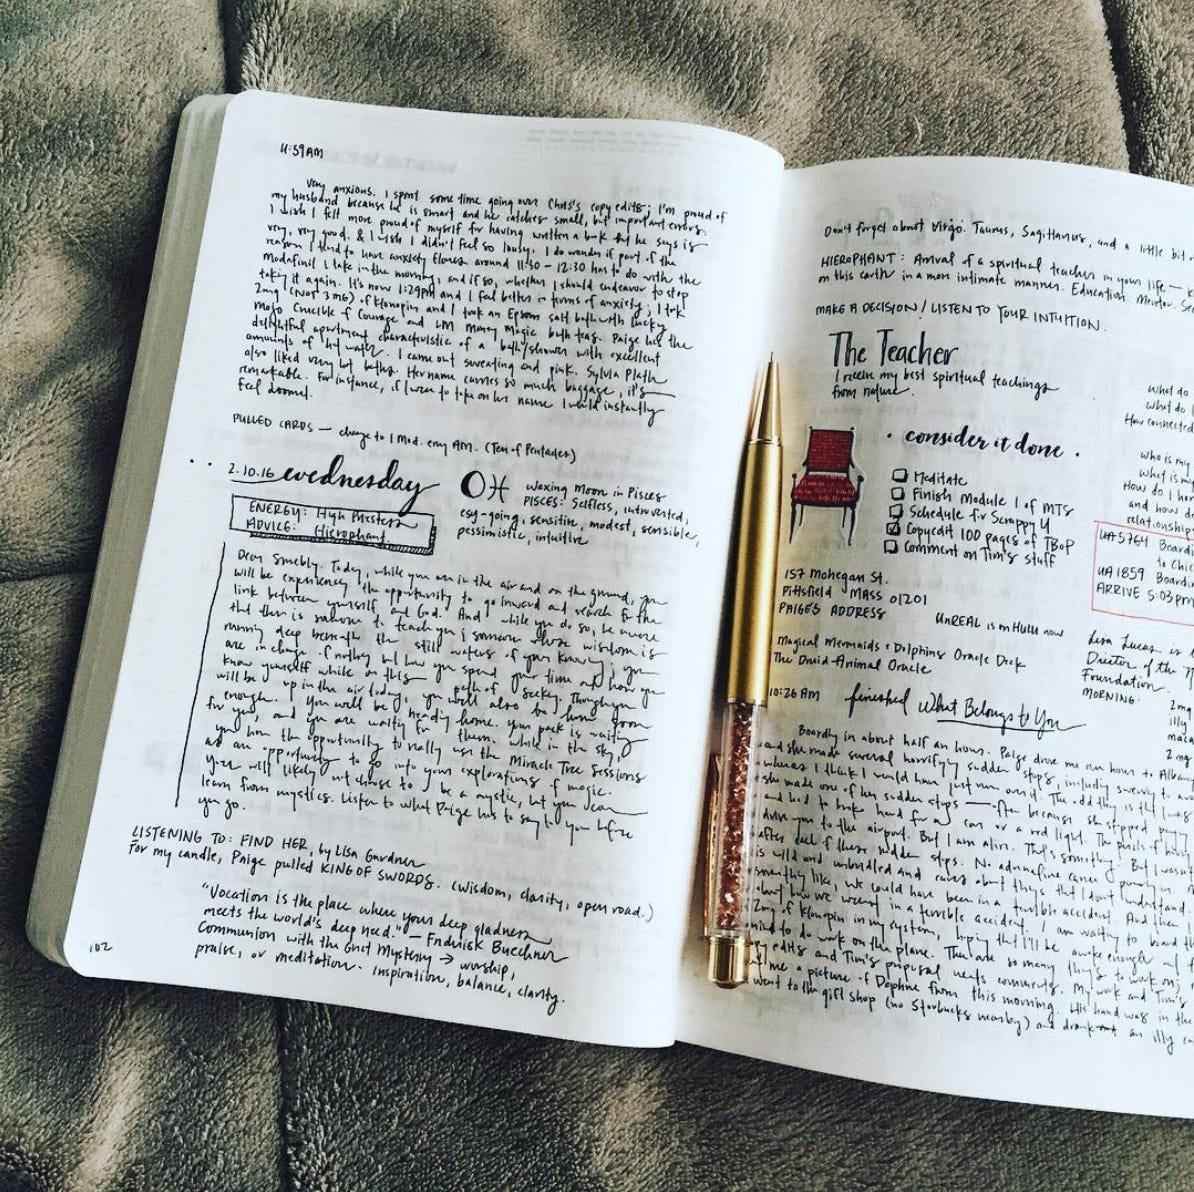 11:59AM
Very anxious. I spent some time going over Chris's copy edits; I'm proud of
my husband because he is smart and he catches small, but important errors.
I wish I felt more proud of myself for having written a book that he says is
very, very good. & I wish I didn't feel so lousy. I do wonder if part of the
reason I tend to have anxiety flares around 11:30 – 12:30 has to do with the
modafinil I take in the morning, and if so, whether I should endeavor to stop
taking it again. It's now 1:29pm and I feel better in terms of anxiety; I took
2mg (NOT 3mg) of Klonopin and I took an Epsom salt bath with Lucky
Mojo Crucible of Courage and LM Money Magic bath teas. Paige has the
delightful apartment characteristic of a bath/shower with excellent
amounts of hot water. I came out sweating and pink. Sylvia Plath
also liked very hot baths. Her name carries so much baggage, it's
remarkable. For instance, if I were to take on her name I would instantly
feel doomed.
PULLED CARDS — change to 1 Mod. every AM. (Ten of Pentacles)
2.10.16 wednesday
waxing Moon in Pisces
PISCES: Selfless, introverted,
easy-going, sensitive, modest, sensible,
pessimistic, intuitive
ENERGY: High Priestess
ADVICE: Hierophant
Dear Smebly. Today, while you are in the air and on the ground, you
will be experiencing the opportunity to go inward and search for the
link between yourself and God. And while you do so, be aware
that there is someone to teach you; someone whose wisdom is
running deep beneath the still waters of your knowing; you
are in charge of nothing but how you spend your time and how you
know yourself while on this path of seeking. Though you
will be up in the air today, you will also be home soon
enough. You will be heading home. Your pack is waiting
for you, and you are waiting for them. While in the sky,
you have the opportunity to really use the Miracle Tree Sessions
as an opportunity to go into your explorations of magic.
You will likely not choose to be a mystic, but you can
learn from mystics. Listen to what Paige has to say to you before
you go.
LISTENING TO: FIND HER, by Lisa Gardner
For my candle, Paige pulled KING OF SWORDS. (wisdom, clarity, open road.)
"Vocation is the place where your deep gladness
meets the world's deep need." — Frederick Buechner
Communion with the Great Mystery → worship,
praise, or meditation. Inspiration, balance, clarity.
102
Don't forget about Virgo. Taurus, Sagittarius, and a little bit
HIEROPHANT: Arrival of a spiritual teacher in your life —
on this earth in a more intimate manner. Education. Mentor.
MAKE A DECISION / LISTEN TO YOUR INTUITION.
The Teacher
I receive my best spiritual teachings
from nature.
• consider it done •
Meditate
Finish Module 1 of MTS
Schedule for Scrappy 4
Copyedit 100 pages of TBoP
Comment on Tim's stuff
what do
what do
How connected
who is my
what is my
How do I
and how do
relationship
UA 5764 Boardi
to Chic
UA 1859 Boardi
ARRIVE 5:03pm
157 Mohegan St.
Pittsfield MASS 01201
PAIGE'S ADDRESS
UnREAL is on Hulu now
Magical Mermaids & Dolphins Oracle Deck
The Druid Animal Oracle
Lisa Lucas is
Director of the
Foundation.
MORNING:
2mg
illy
maca
2 mg
10:26 AM
finished What Belongs to You
Boarding in about half an hour. Paige drove me an hour to Albany
and she made several horrifying sudden stops, including swerving to
whereas I think I would have just run over it. The odd thing is that I was
she made one of her sudden stops — often because she stopped paying
and had to brake hard for a car or a red light. The perils of having
drive you to the airport. But I am alive. That's something! But I wasn't
after each of these sudden stops. No adrenaline came
is wild and unbridled and cares about things that I don't understand.
something like, we could have been in a terrible accident. And then
about how we weren't in a terrible accident. I am waiting to board
2mg of Klonopin in my system, hoping that I'll be awake enough
mind to do work on the plane. There are so many things to work on;
edits and Tim's proposal needs comments. My work and Tim's
me a picture of Daphne from this morning. His hand was in the
went to the gift shop (no Starbucks nearby) and drank an illy